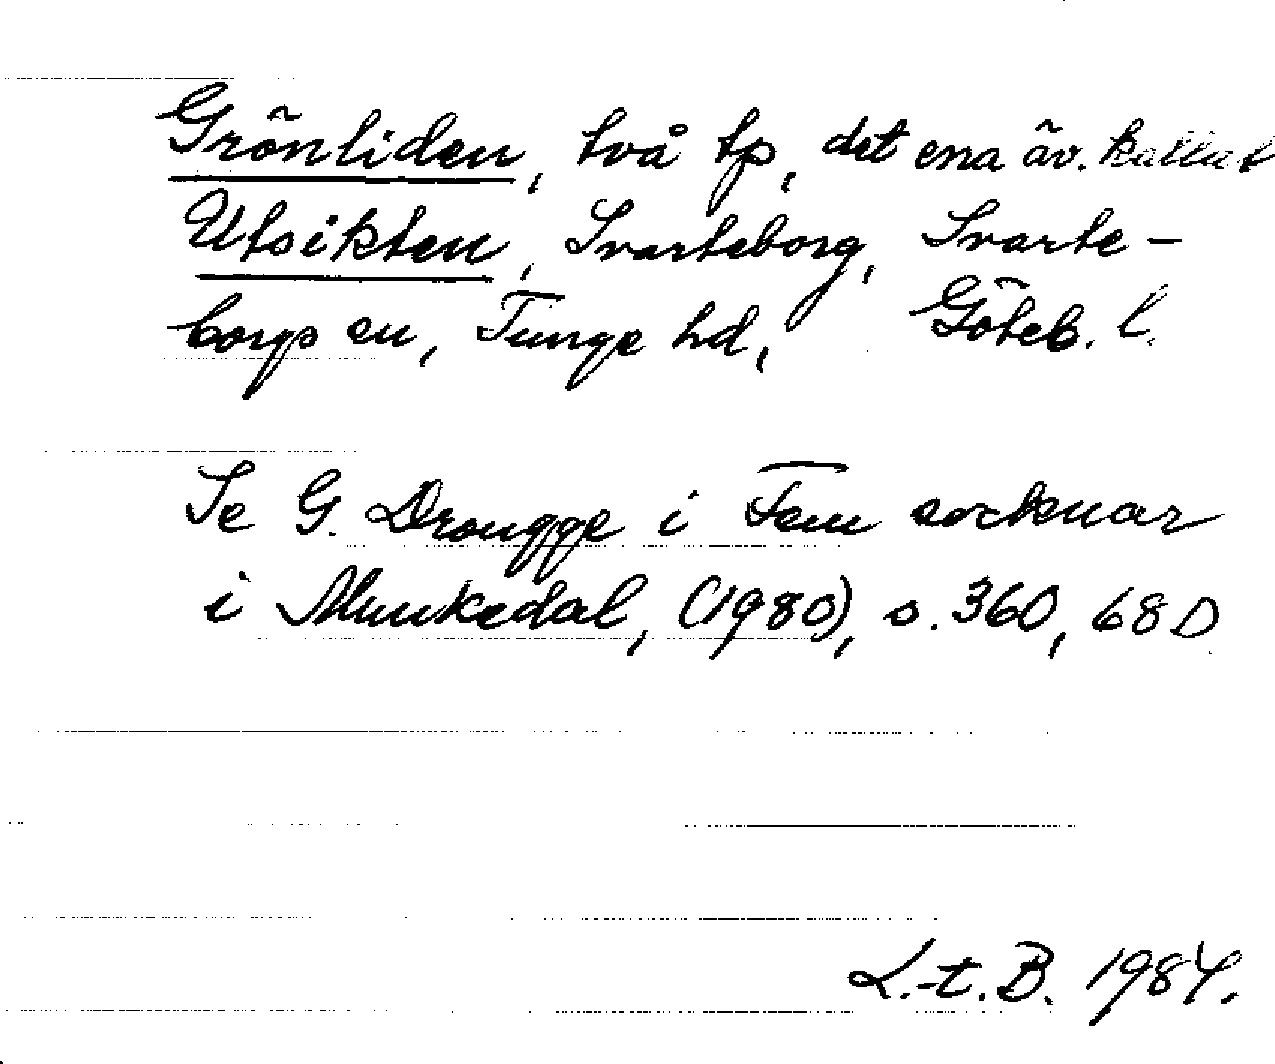 Grönliden, två tp, det ena äv. kallat
Utsikten, Svarteborg, Svarte-
borgs sn, Tunge hd, Göteb. l.
Se G. Drougge i Fem socknar
i Munkedal, (1980), s. 360, 68D
L.-t. B. 1984.